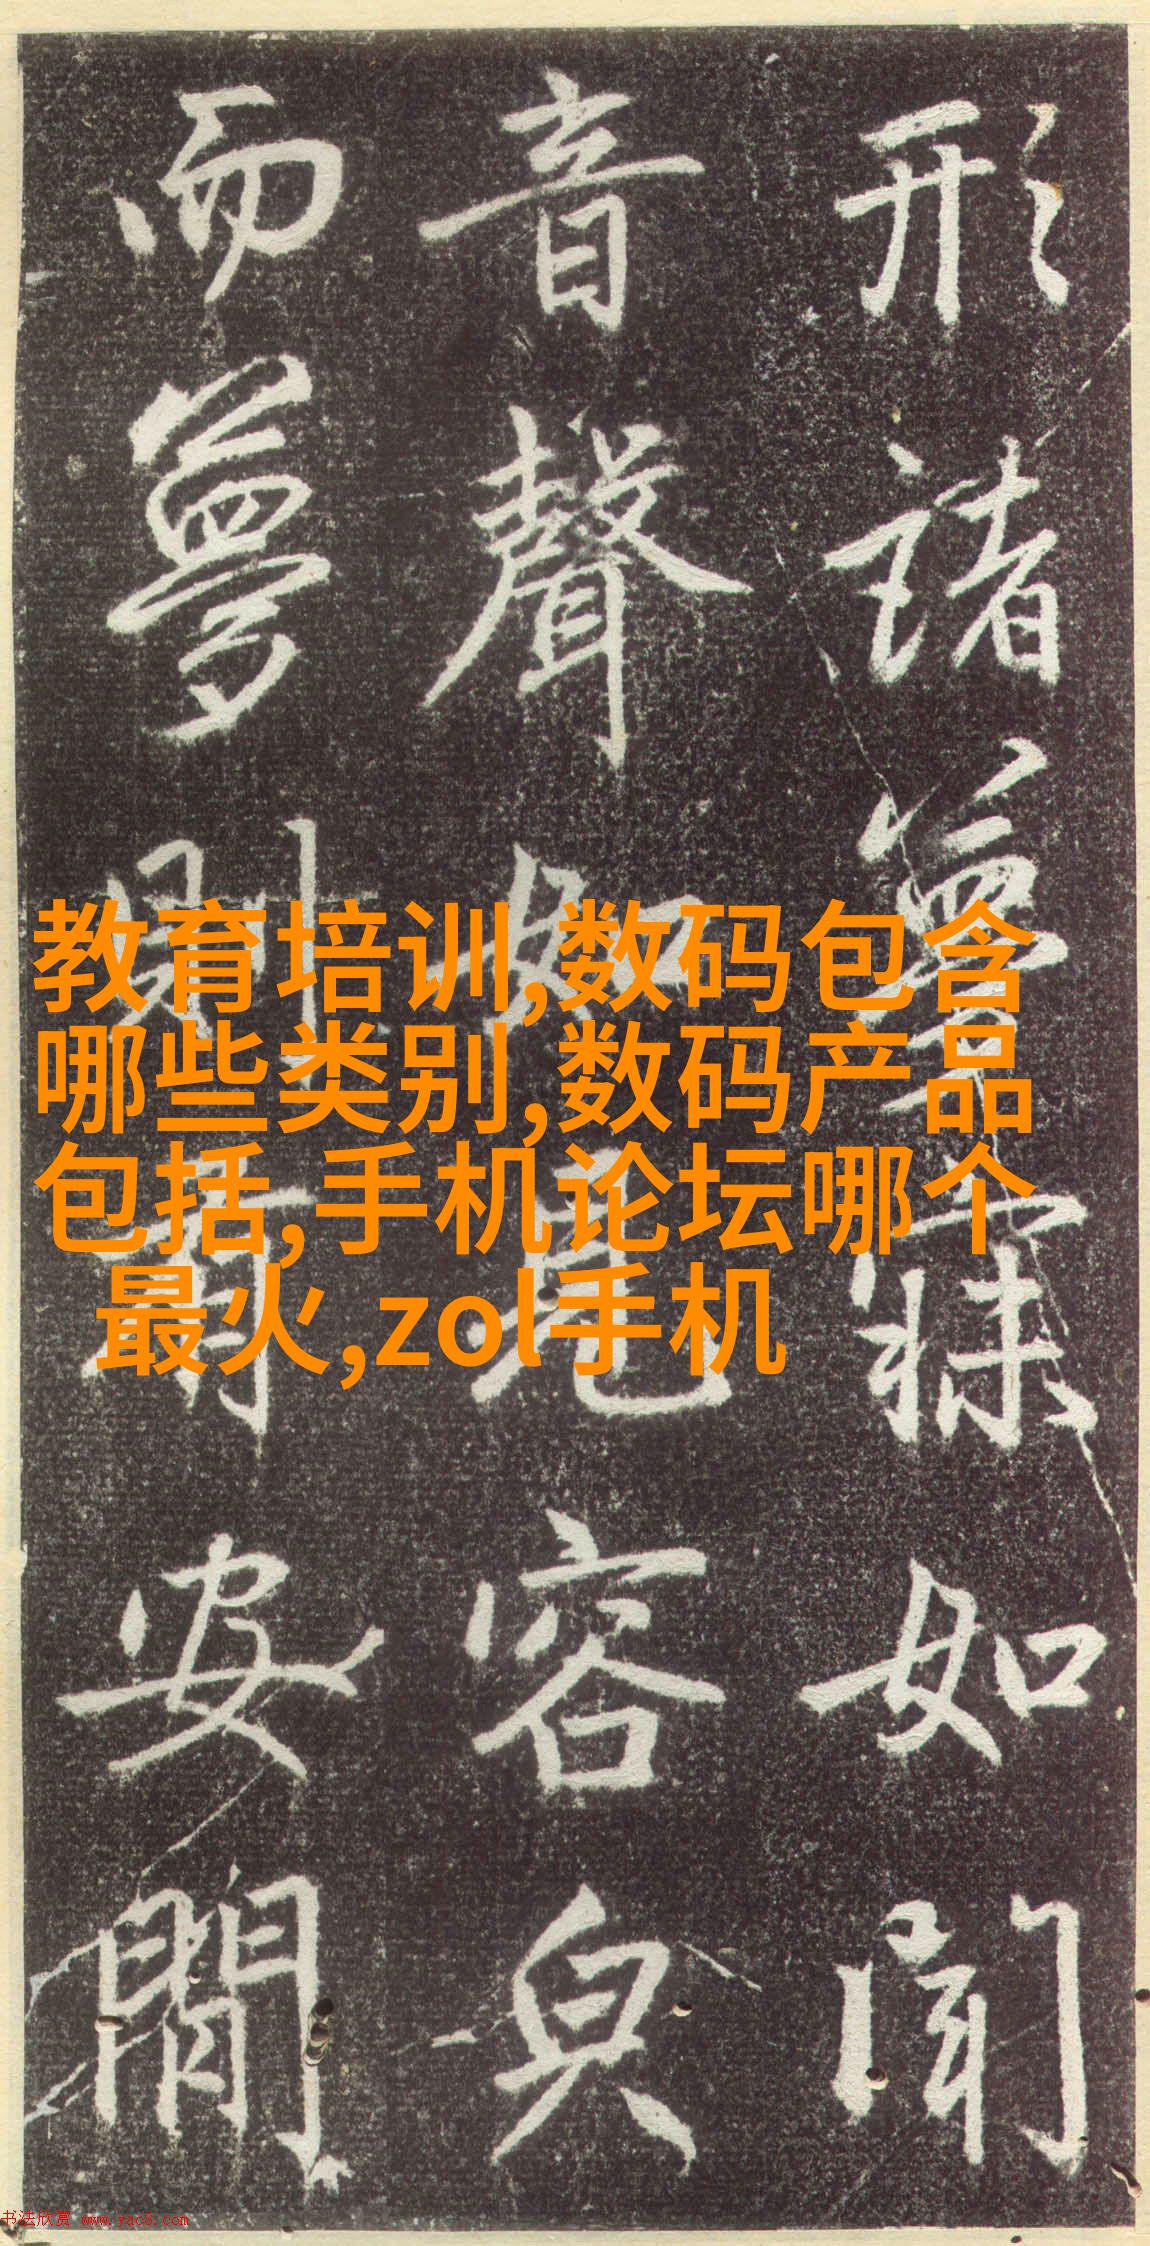 形諸夢寐如聞
音聲如見容皃
而夢則安閒
教育培训,数码包含
哪些类别,数码产品
包括,手机论坛哪个
最火,zol手机
书法欣赏 www.yac8.com